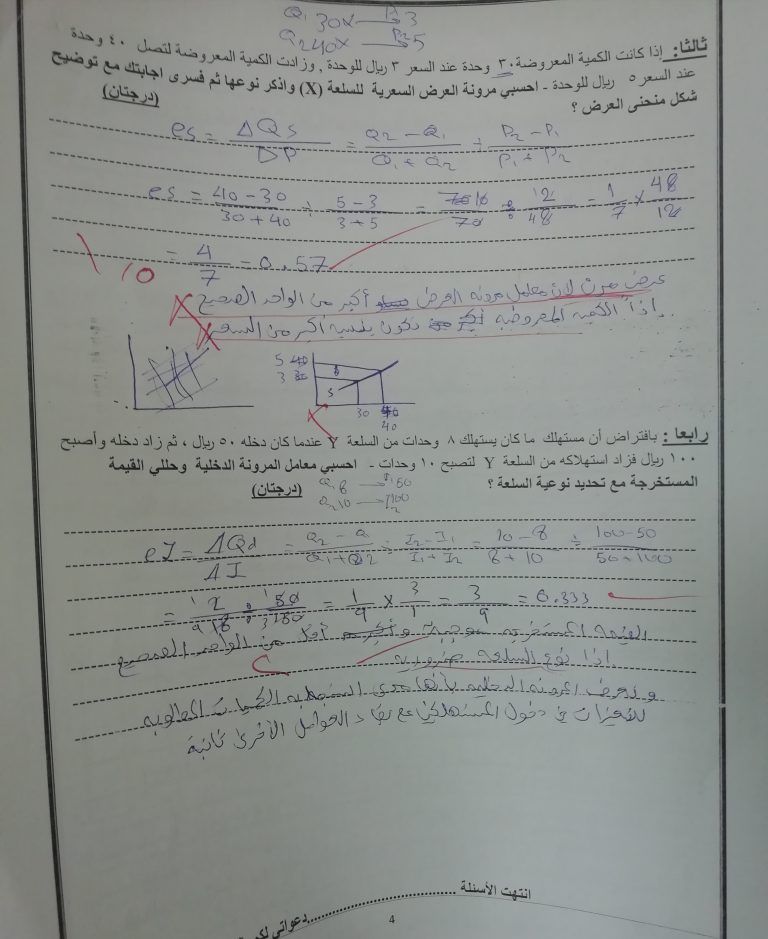 Q₁ 30x → P₁ 3
Q₂ 40x → P₂ 5
ثالثا: إذا كانت الكمية المعروضة ٣٠ وحدة عند السعر ٣ ريال للوحدة , وزادت الكمية المعروضة لتصل ٤٠ وحدة
عند السعر ٥ ريال للوحدة - احسبي مرونة العرض السعرية للسلعة (X) واذكر نوعها ثم فسرى اجابتك مع توضيح
شكل منحنى العرض ؟ (درجتان)
es = ΔQs / ΔP = Q2 - Q1 / Q1 + Q2 ÷ P2 - P1 / P1 + P2
es = 40 - 30 / 30 + 40 ÷ 5 - 3 / 3 + 5 = 10 / 70 ÷ 12 / 48 = 1 / 7 × 48 / 12
= 4 / 7 = 0.57
عرض مرن لان معامل مرونه العرض أكبر من الواحد الصحيح
إذاً الكميه المعروضه تكون بنسبه أكبر من السعر
5 40
3 30
S
30 40
40
رابعا : بافتراض أن مستهلك ما كان يستهلك ٨ وحدات من السلعة Y عندما كان دخله ٥٠ ريال ، ثم زاد دخله وأصبح
١٠٠ ريال فزاد استهلاكه من السلعة Y لتصبح ١٠ وحدات - احسبي معامل المرونة الدخلية وحللي القيمة
المستخرجة مع تحديد نوعية السلعة ؟ (درجتان)
Q₁ 8 → I₁ 50
Q₂ 10 → I₂ 100
eI = ΔQd / ΔI = Q2 - Q / Q1 + Q2 ÷ I2 - I1 / I1 + I2 = 10 - 8 / 8 + 10 ÷ 100 - 50 / 50 + 100
= 2 / 18 ÷ 50 / 150 = 1 / 9 × 3 / 1 = 3 / 9 = 0.333
القيمه المستخرجه موجبة و أقل من الواحد الصحيح
إذا نوع السلعه ضروريه
وتعرف المرونه الدخليه بأنها مدى استجابه الكميات المطلوبه
للتغيرات في دخول المستهلكين مع بقاء العوامل الأخرى ثابتة
انتهت الأسئلة
4